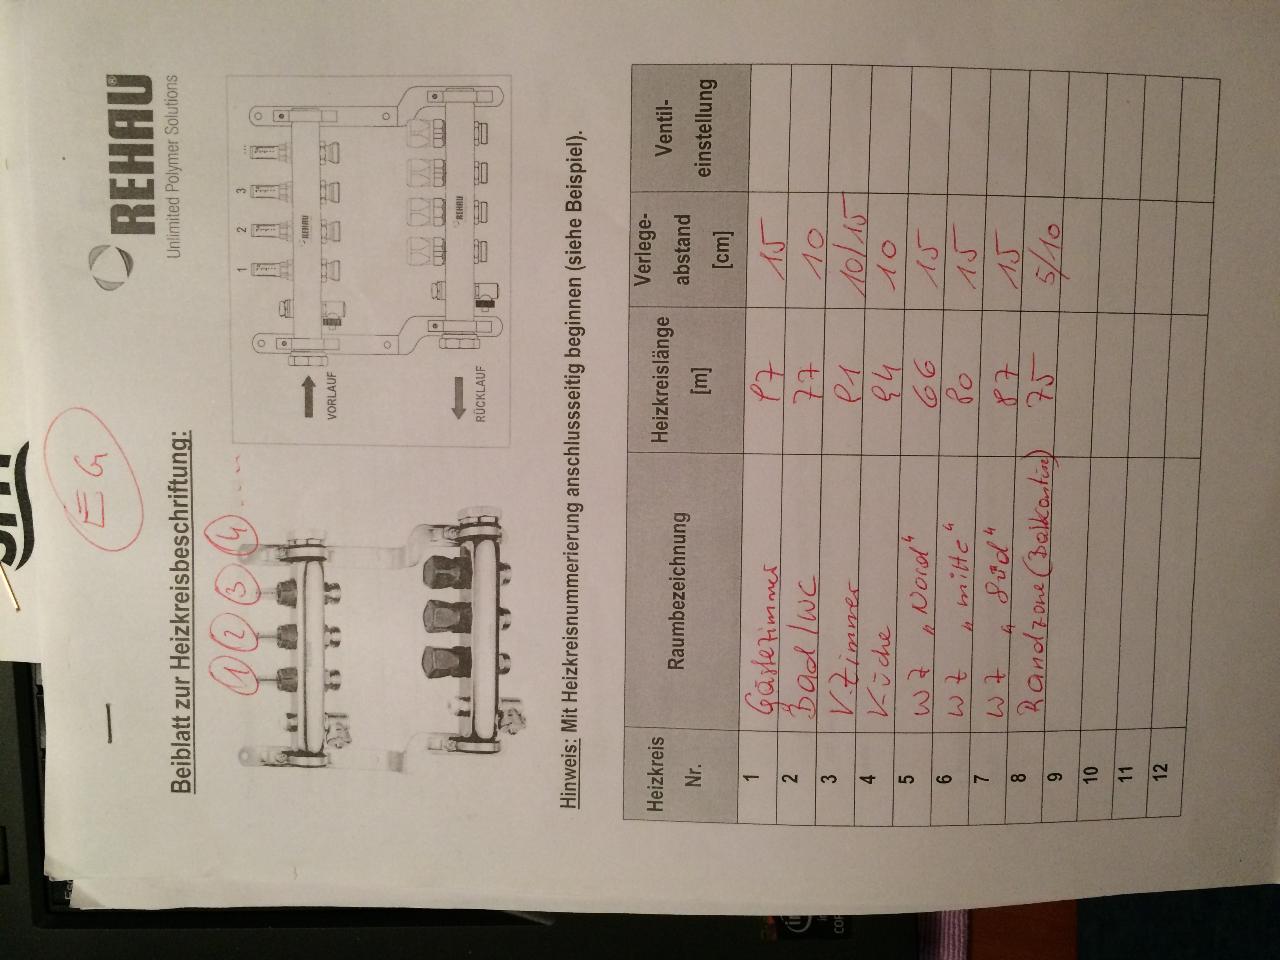 EG
REHAU®
Unlimited Polymer Solutions
Beiblatt zur Heizkreisbeschriftung:
1 2 3 4 ...
1 2 3 ...
REHAU
VORLAUF
REHAU
RÜCKLAUF
Hinweis: Mit Heizkreisnummerierung anschlussseitig beginnen (siehe Beispiel).
Heizkreis Nr. Raumbezeichnung Heizkreislänge [m] Verlege-abstand [cm] Ventil-einstellung
1 Gästezimmer 15
2 Bad/WC 77 10
3 V.Zimmer 10/15
4 Küche 10
5 WZ „Nord" 66 15
6 WZ „mitte" 15
7 WZ „Süd" 87 15
8 Randzone (Balkontür) 75 5/10
9
10
11
12